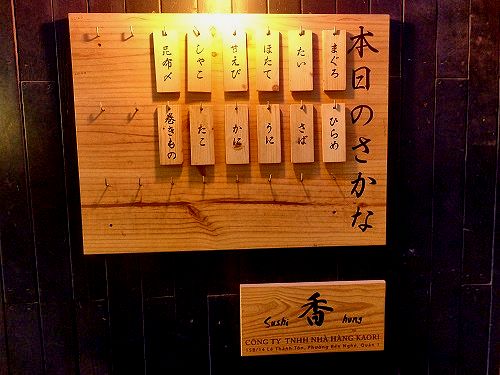 本日のさかな
まぐろ
たい
ほたて
甘えび
しゃこ
昆布〆
ひらめ
さば
うに
かに
たこ
巻きもの
Sushi 香 hung
CÔNG TY TNHH NHÀ HÀNG KAORI
15B/14 Lê Thánh Tôn, Phường Bến Nghé, Quận 1